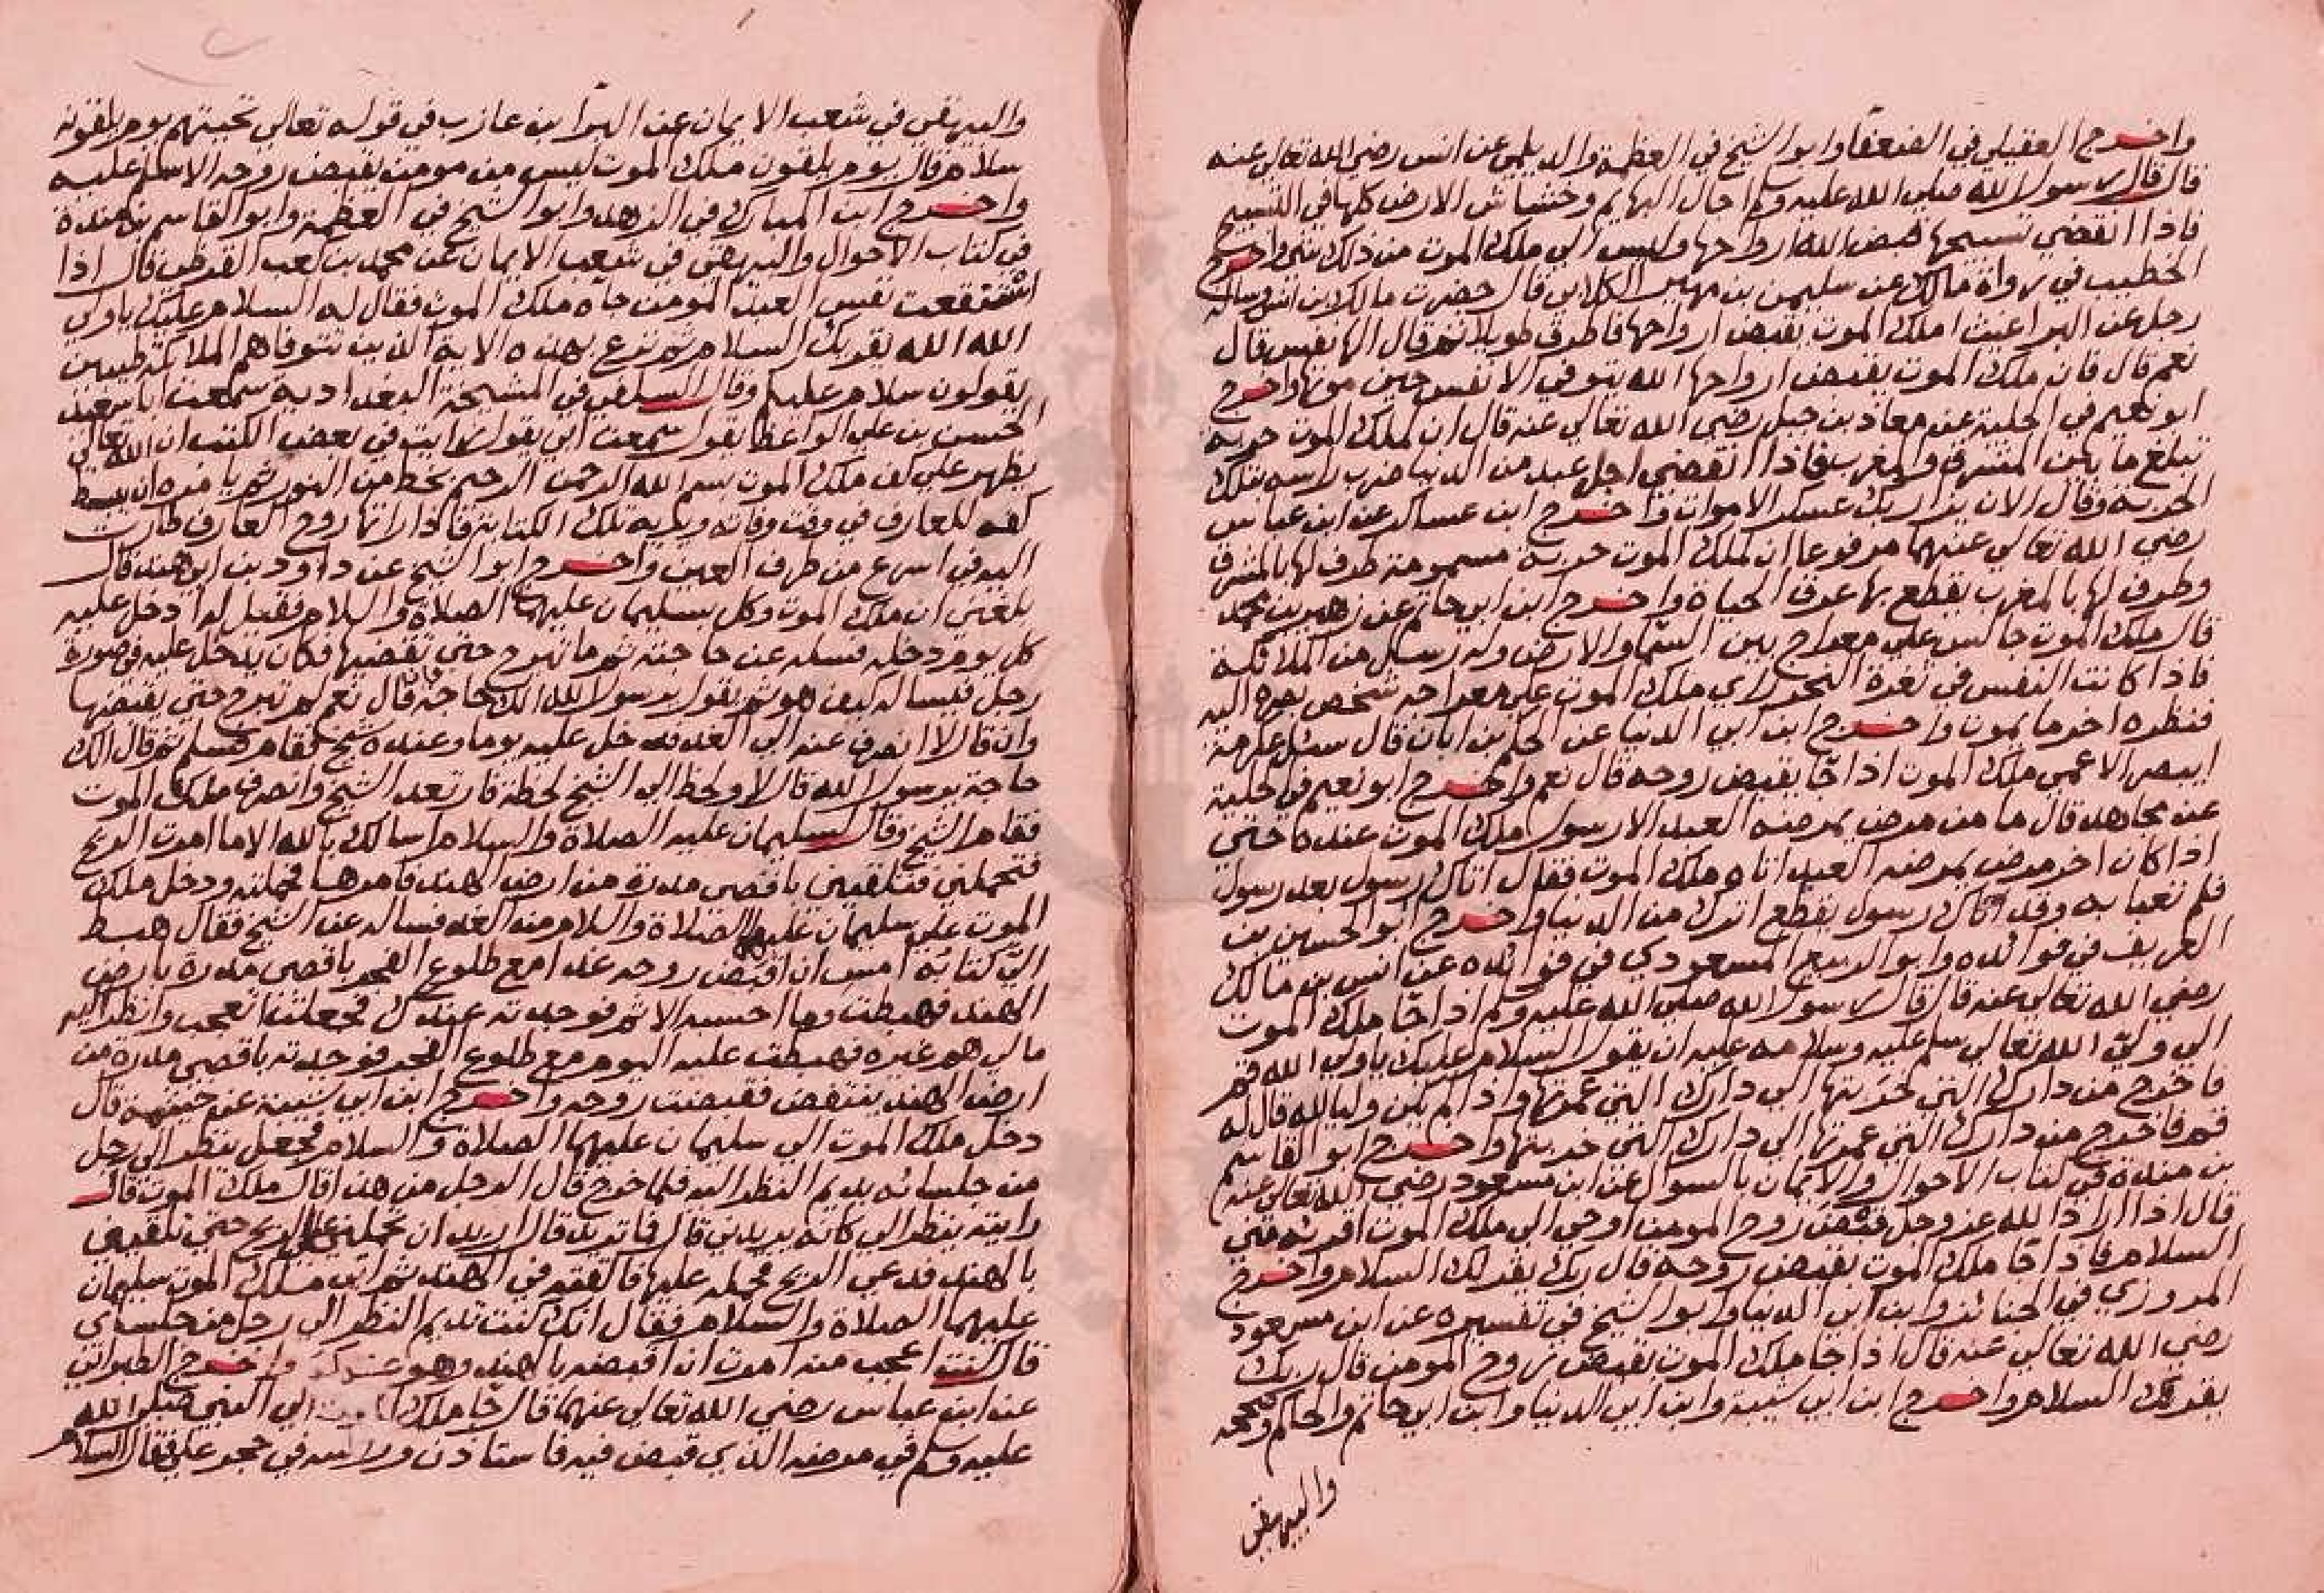 واخرج العقيلي في الضعفا وابو الشيخ في العظمة والديلمي عن انس رضي الله تعالي عنه
قال قال رسول الله صلي الله عليه وسلم اجال البهايم وخشاش الارض كلها في التسبيح
فاذا انقضي تسبيحها قبض الله ارواحها وليس الي ملك الموت من ذلك شي واخرج
الخطيب في رواة مالك عن سليمن بن مهير الكلابي قال حضرت مالك ابن انس وساله
رجل عن البراغيث املك الموت يقبض ارواحها فاطرق طويلا ثم قال الها نفس قال
نعم قال فان ملك الموت يقبض ارواحها الله يتوفي الانفس حين موتها واخرج
ابو نعيم في الحلية عن معاذ بن جبل رضي الله تعالي عنه قال ان لملك الموت حربة
تبلغ ما بين المشرق والمغرب فاذا انقضي اجل عبد من الدنيا ضرب راسه بتلك
الحربة وقال الان يزار بك عسكر الاموات واخرج ابن عساكر عن ابن عباس
رضي الله تعالي عنهما مرفوعا ان لملك الموت حربة مسمومة طرف لها بالمشرق
وطرف لها بالمغرب يقطع بها عرق الحياة واخرج ابن ابي حاتم عن زهير بن محمد
قال ملك الموت جالس علي معراج بين السما والارض وله رسل من الملائكة
فاذا كانت النفس في ثغرة النحر راي ملك الموت علي معراجه شخص بصره اليه
فنظره اخر ما يموت واخرج ابن ابي الدنيا عن الحكم بن ابان قال سئل عكرمة
ايبصر الاعمي ملك الموت اذا جا يقبض روحه قال نعم واخرج ابو نعيم في حلية
عن مجاهد قال ما من مرض يمرضه العبد الا رسول ملك الموت عنده حتي
اذا كان اخر مرض يمرضه العبد اتاه ملك الموت فقال اتاك رسول بعد رسول
فلم تعبا به وقد اتاك رسول يقطع اثرك من الدنيا واخرج ابو الحسين بن
العريف في فوائده وابو الربيع المسعودي في فوائده عن انس بن مالك
رضي الله تعالي عنه قال قال رسول الله صلي الله عليه وسلم اذا جا ملك الموت
الي ولي الله تعالي سلم عليه وسلامه عليه ان يقول السلام عليك يا ولي الله قم
فاخرج من دارك التي خربتها الي دارك التي عمرتها واذا لم يكن وليا لله قال له
قم فاخرج من دارك التي عمرتها الي دارك التي خربتها واخرج ابو القاسم
بن مندة في كتاب الاحوال والايمان بالسوال عن ابن مسعود رضي الله تعالي عنه
قال اذا اراد الله عز وجل قبض روح المومن اوحي الي ملك الموت اقرئه مني
السلام فاذا جا ملك الموت يقبض روحه قال ربك يقرئك السلام واخرج
المروزي في الجنائز وابن ابي الدنيا وابو الشيخ في تفسيره عن ابن مسعود
رضي الله تعالي عنه قال اذا جا ملك الموت يقبض روح المومن قال ربك
يقرئك السلام واخرج ابن ابي شيبة وابن ابي الدنيا وابن ابي حاتم والحاكم وصححه
والبيهقي
والبيهقي في شعب الايمان عن البرا بن عازب في قوله تعالي تحيتهم يوم يلقونه
سلام قال يوم يلقون ملك الموت ليس من مومن يقبض روحه الا سلم عليه
واخرج ابن المبارك في الزهد وابو الشيخ في العظمة وابو القاسم بن مندة
في كتاب الاحوال والبيهقي في شعب الايمان عن محمد بن كعب القرظي قال اذا
استنقعت نفس العبد المومن جاه ملك الموت فقال له السلام عليك يا ولي
الله الله يقريك السلام ثم نزع بهذه الاية الذين تتوفاهم الملائكة طيبين
يقولون سلام عليكم وقال السلفي في المشيخة البغدادية سمعت ابا سعيد
الحسن بن علي الواعظ يقول سمعت ابي يقول رايت في بعض الكتب ان الله تعالي
يظهر علي كف ملك الموت بسم الله الرحمن الرحيم بخط من النور ثم يامره ان يبسط
كفه للعارف في وقت وفاته ويريه تلك الكتابة فاذا راتها روح العارف طارت
اليه في اسرع من طرف العين واخرج ابو الشيخ عن داود بن ابي هند قال
بلغني ان ملك الموت وكل بسليمان عليهما الصلاة والسلام فقيل له ادخل عليه
كل يوم دخلة فسله عن حاجته ثم ما تبرح حتي تقضيها فكان يدخل عليه في صورة
رجل فيساله كيف هو ثم يقول يرسول الله الك حاجة فان قال نعم لم يبرح حتي يقضيها
وان قال لا انصرف عنه الي الغد فدخل عليه يوما وعنده شيخ فقام فسلم ثم قال الك
حاجة يرسول الله قال لا ولحظ الي الشيخ لحظة فارتعد الشيخ وانصرف ملك الموت
فقام الشيخ وقال لسليمان عليه الصلاة والسلام اسالك بالله الا ما امرت الريح
فتحملني فتلقيني باقصي مدرة من ارض الهند فامرها فحملته ودخل ملك
الموت علي سليمان عليهما الصلاة والسلام من الغد فساله عن الشيخ فقال هبط
الي كتابه امس ان اقبض روحه غدا مع طلوع الفجر باقصي مدرة بارض
الهند فهبطت وما احسبه الا ثم فوجدته عندك فجعلت اتعجب وانظر اليه
مالي هم غيره فهبطت عليه اليوم مع طلوع الفجر فوجدته باقصي مدرة من
ارض الهند ينتفض فقبضت روحه واخرج ابن ابي شيبة عن خيثمة قال
دخل ملك الموت الي سليمان عليهما الصلاة والسلام فجعل ينظر الي رجل
من جلسائه يديم النظر اليه فلما خرج قال الرجل من هذا قال ملك الموت قال
رايته ينظر الي كانه يريدني قال فما تريد قال اريد ان تحملني علي الريح حتي تلقيني
بالهند فدعي الريح فحمله عليها فالقته في الهند ثم اتي ملك الموت سليمان
عليهما الصلاة والسلام فقال انك كنت تديم النظر الي رجل من جلساي
قال كنت اعجب منه امرت ان اقبضه بالهند وهو عندك واخرج الطبراني
عن ابن عباس رضي الله تعالي عنهما قال جا ملك الموت الي النبي صلي الله
عليه وسلم في مرضه الذي قبض فيه فاستاذن وراسه في حجر علي فقال السلام